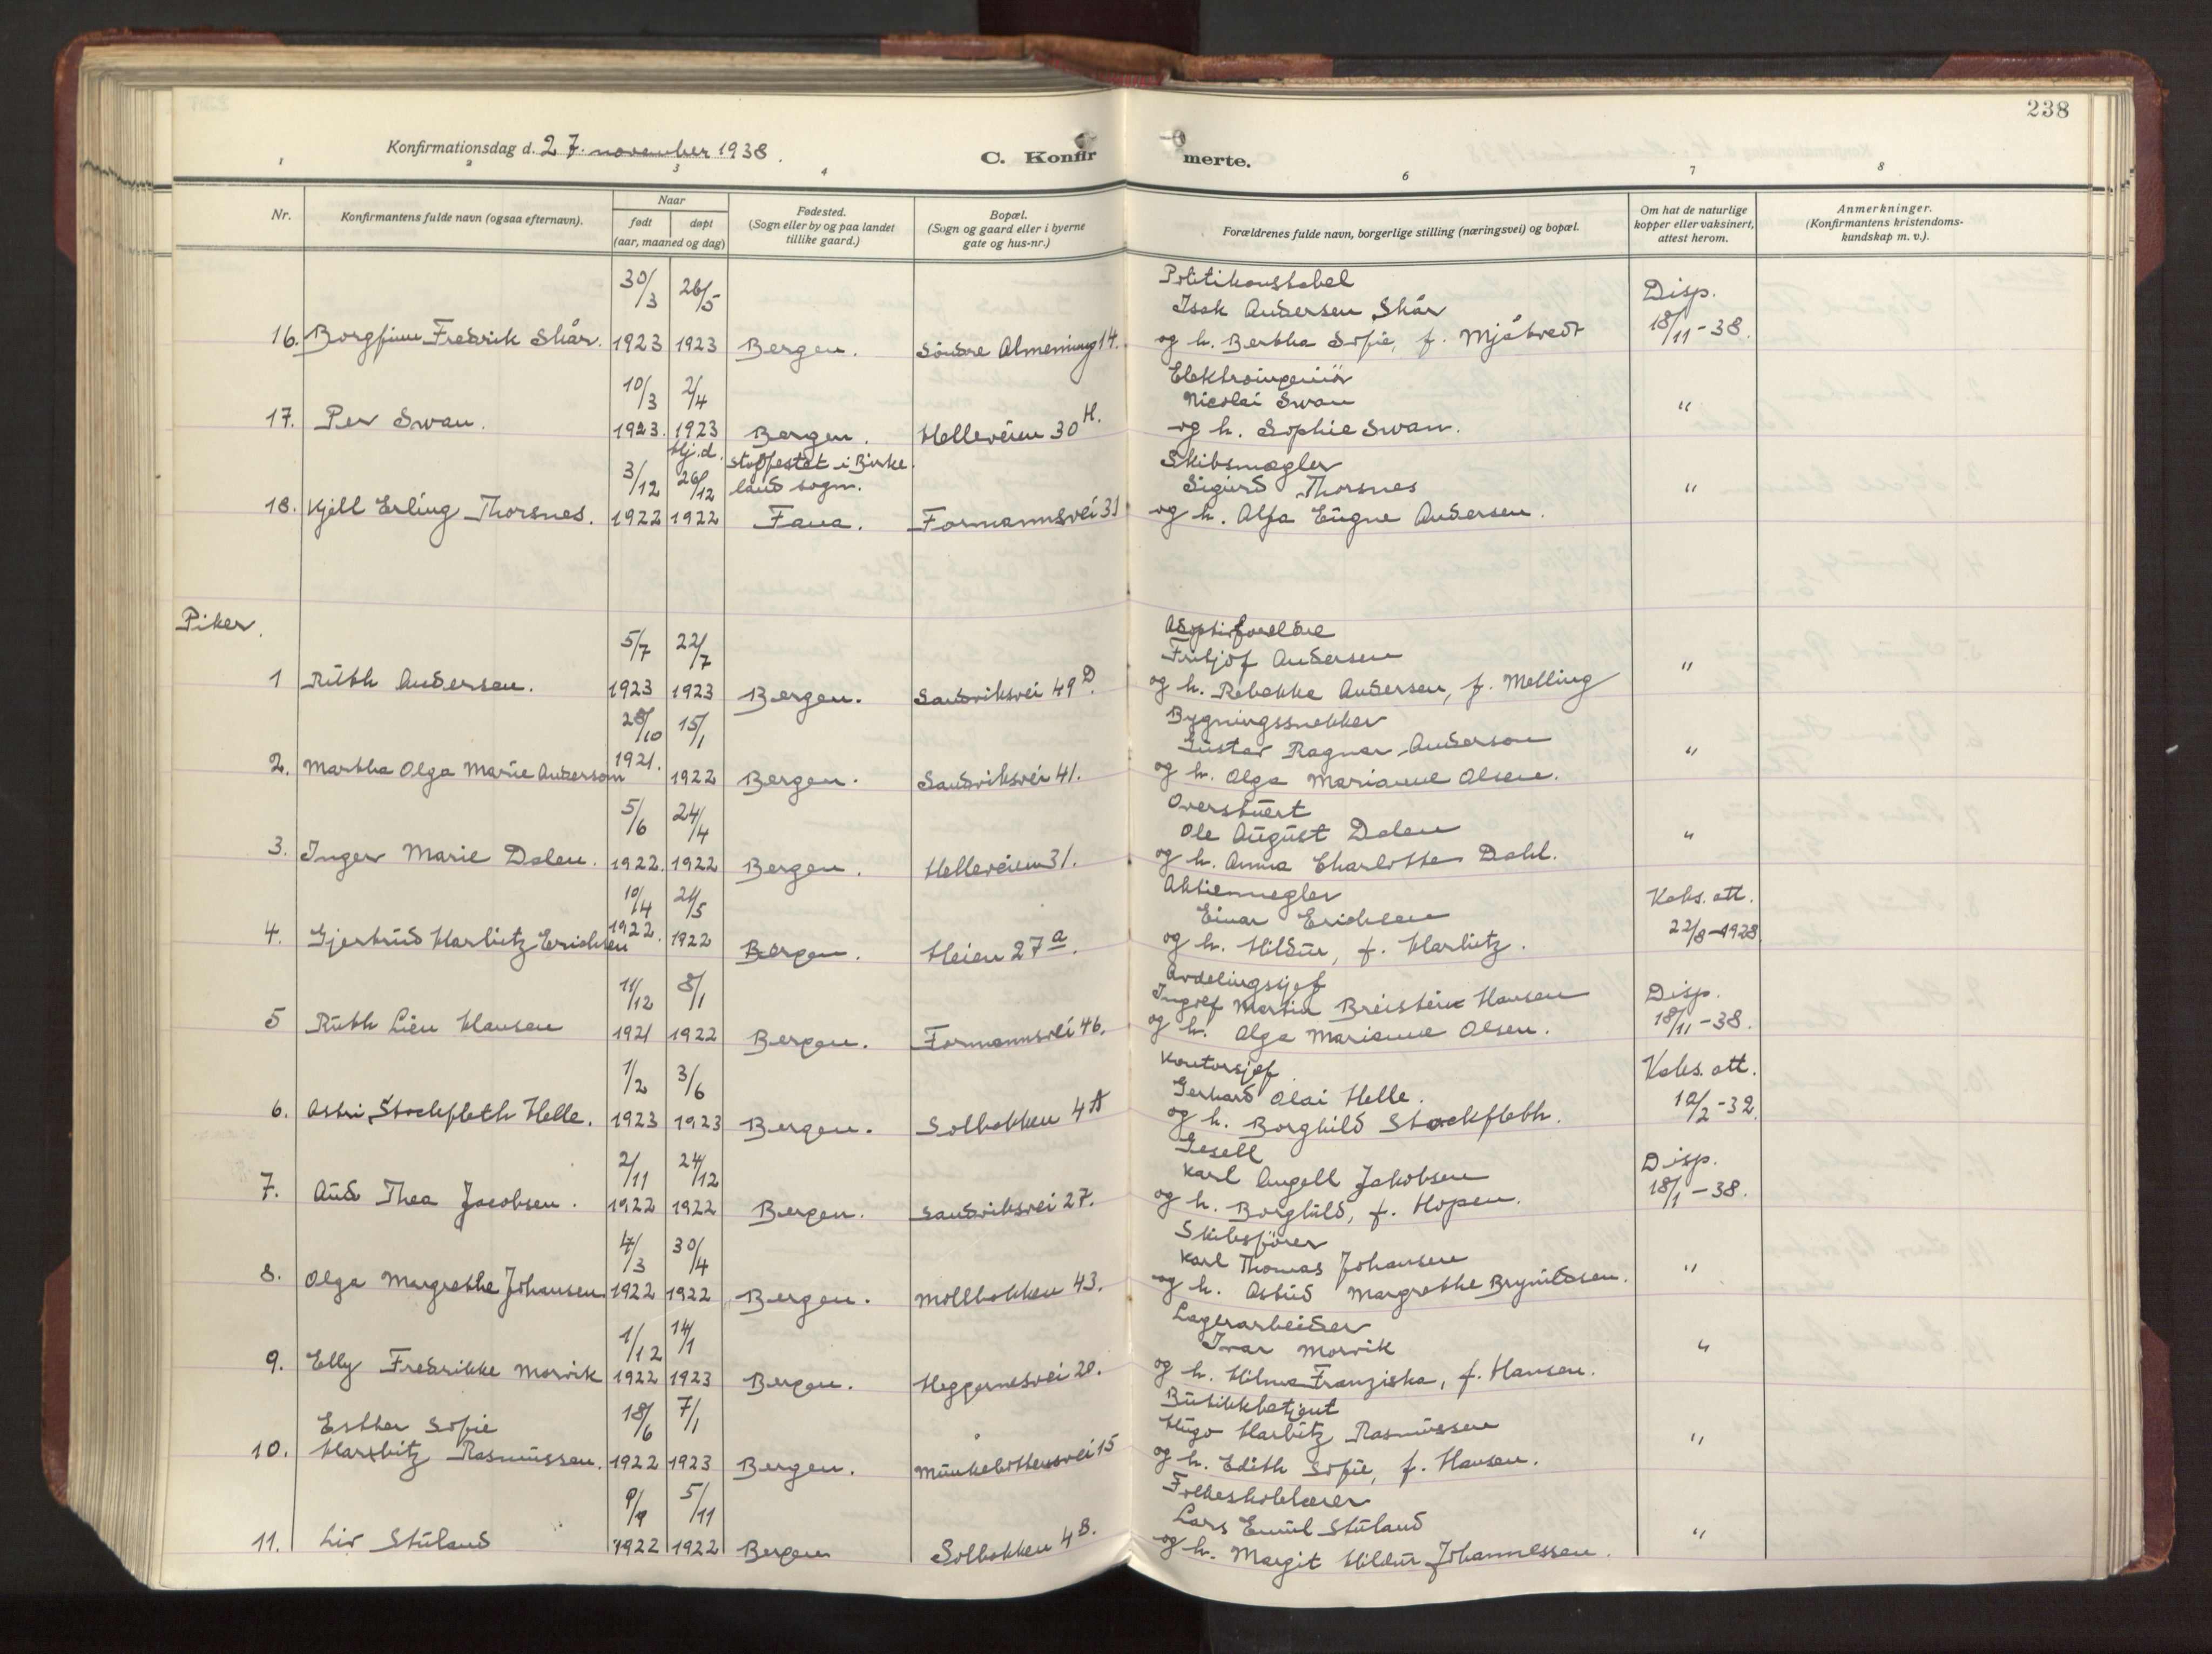 238
Konfirmationsdag d. 27. november 1938.
C. Konfirmerte.
1 2 3 4 6 7 8
Nr.
Konfirmantens fulde navn (ogsaa efternavn).
Naar
født
døpt
(aar, maaned og dag)
Fødested.
(Sogn eller by og paa landet
tillike gaard.)
Bopæl.
(Sogn og gaard eller i byerne
gate og hus-nr.)
Forældrenes fulde navn, borgerlige stilling (næringsvei) og bopæl.
Om hat de naturlige
kopper eller vaksinert,
attest herom.
Anmerkninger.
(Konfirmantens kristendoms-
kundskap m. v.).
30/3 26/5 Politikonstabel Disp.
Isak Andersen Skår
16. Borgfinn Fredrik Skår. 1923 1923 Bergen. Söndre Almenning 14. og h. Bertha Sofie, f. Mjåtvedt 18/11-38.
10/3 2/4 Elektroingeniör
Nicolai Swan
17. Per Swan. 1923. 1923 Bergen. Helleveien 30 H. og h. Sophie Swan. "
hj.d. stadfestet i Birke Skibsmægler
3/12 26/12 land sogn. Sigurd Thorsnes
18. Kjell Erling Thorsnes. 1922 1922 Fana. Formannsvei 31 og h. Alfa Eugne Andersen. "
Piker.
5/7 22/7 Adoptivforeldre
Fritjof Andersen
1 Ruth Andersen. 1923 1923 Bergen. Sandviksvei 49 D. og h. Rebekka Andersen, f. Melling "
28/10 15/1 Bygningssnekker
Gustav Ragnar Anderson
2. Martha Olga Marie Anderson 1921. 1922 Bergen. Sandviksvei 41. og h. Olga Marianne Olsen. "
5/6 24/4 Overstuert
Ole August Dalen
3. Inger Marie Dalen. 1922. 1922 Bergen. Helleveien 31. og h. Anna Charlotte Dahl. "
10/4 21/5 Aktiemegler Vaks. att.
Einar Erichsen
4. Gjertrud Harbitz Erichsen 1922. 1922 Bergen. Heien 27 a. og h. Hildur, f. Harbitz. 22/8-1928
11/12 8/1 Avdelingssjef Disp.
Ingolf Martin Breistein Hansen
5 Ruth Lien Hansen 1921 1922 Bergen. Formannsvei 46. og h. Olga Marianne Olsen. 18/11-38.
1/2 3/6 Kontorsjef Vaks. att.
Gerhard Olai Helle.
6. Astri Stockfleth Helle. 1923 1923 Bergen. Solbakken 4 A og h. Borghild Stockfleth. 12/2-32.
2/11 24/12 Gesell Disp.
Karl Angell Jakobsen
7. Aud Thea Jacobsen. 1922 1922 Bergen. Sandviksvei 27. og h. Borghild, f. Hopen. 18/1-38.
4/3 30/4 Skibsförer
Karl Thomas Johansen
8. Olga Margrethe Johansen 1922 1922 Bergen. Möllbakken 43. og h. Astrid Margrethe Brynildsen. "
1/12 14/1 Lagerarbeider
Ivar Morvik
9. Elly Fredrikke Morvik 1922 1923 Bergen. Heggernesvei 20. og h. Hilma Franziska, f. Hansen. "
Esther Sofie 18/6 7/1 Butikkbetjent
Hugo Harbitz Rasmussen
10. Harbitz Rasmussen. 1922 1923 Bergen. Munkebottensvei 15 og h. Edith Sofie, f. Hansen. "
9/9 5/11 Folkeskolelærer
Lars Emil Støland
11. Liv Støland 1922 1922 Bergen Solbakken 4 B. og h. Margit Hildur Johannessen. "